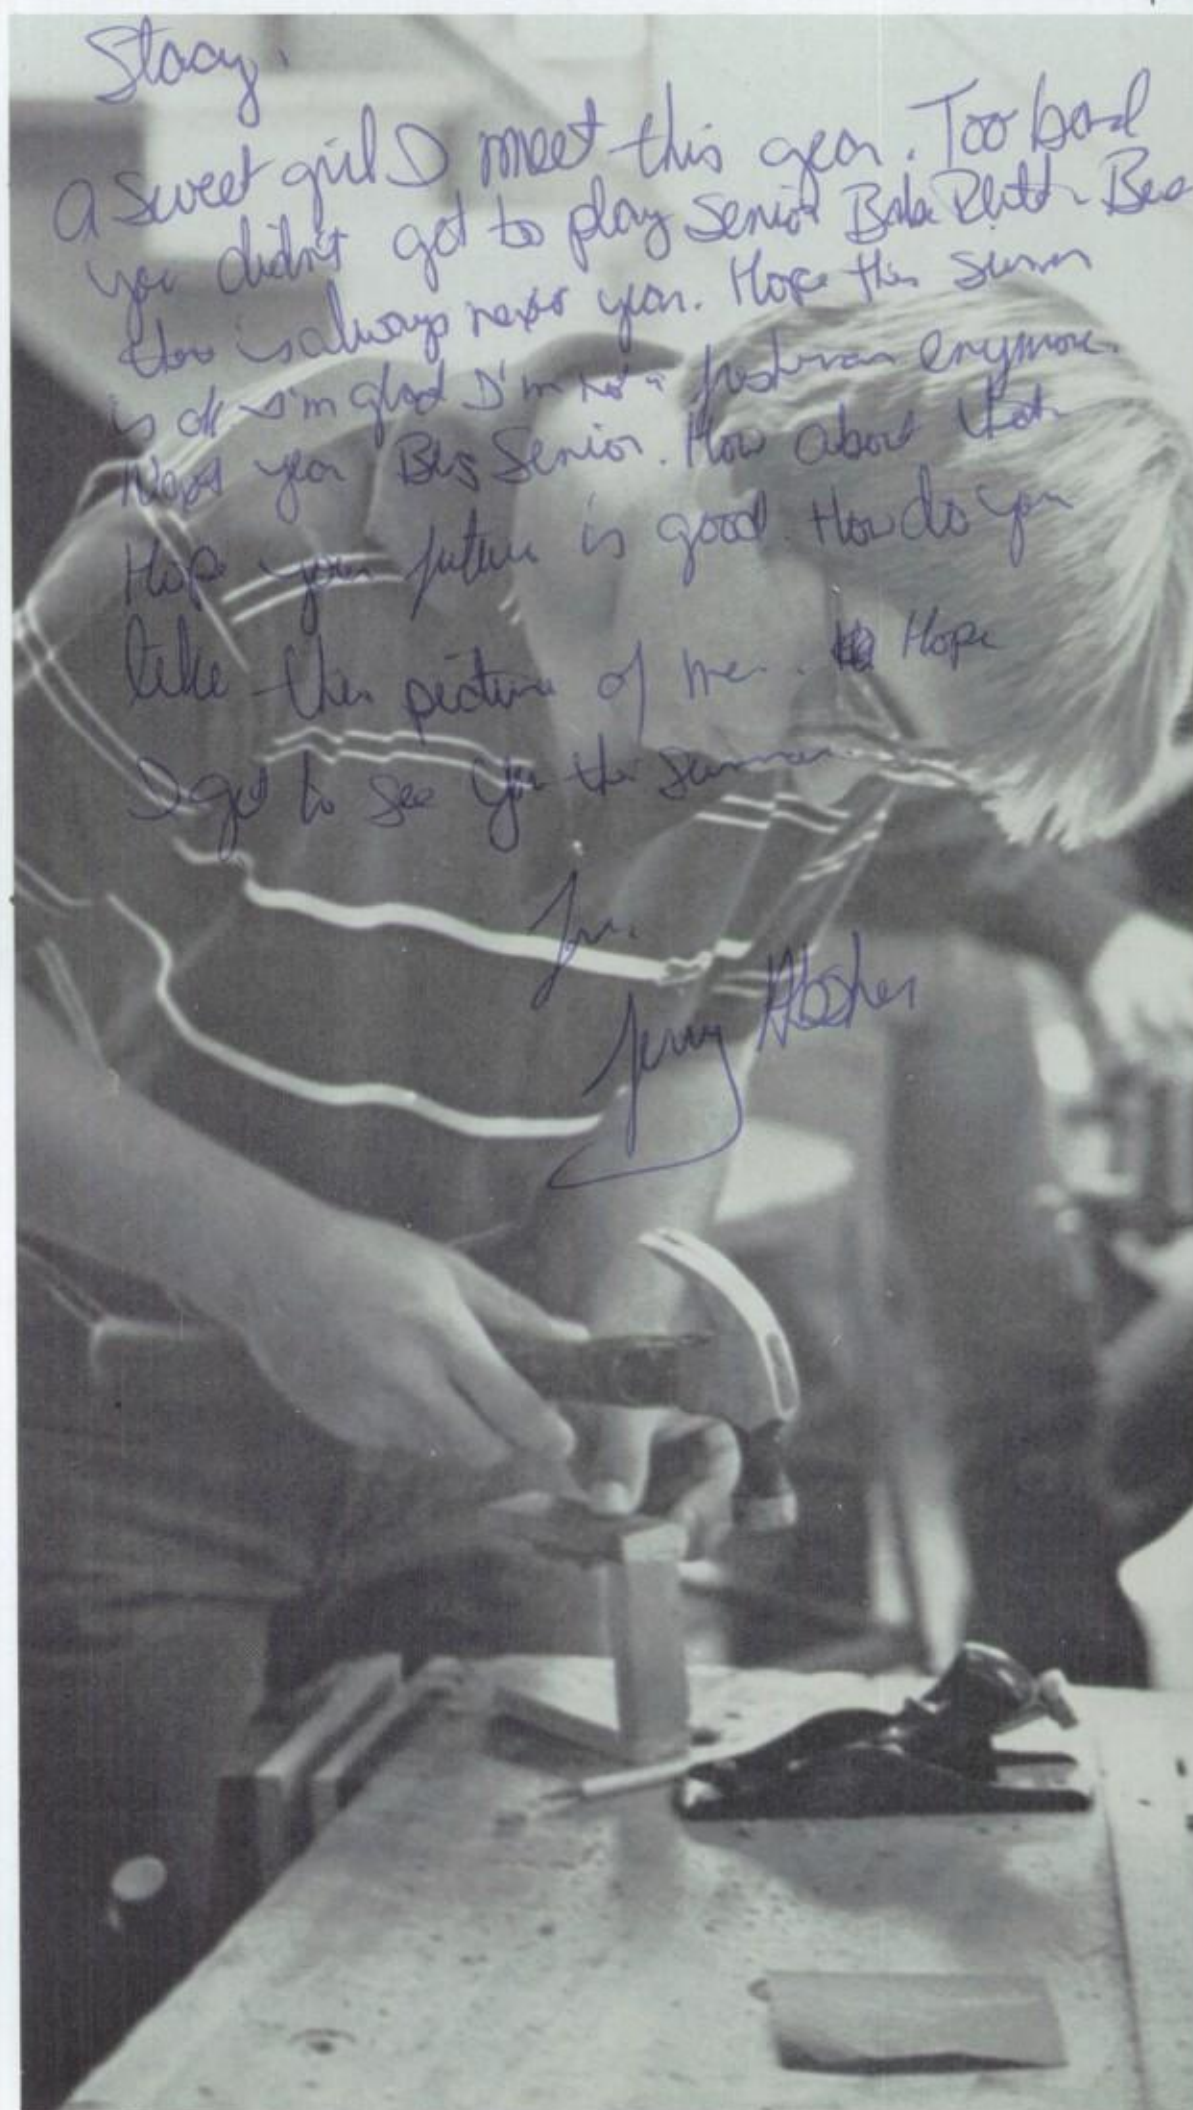 Stacy,
A Sweet girl I meet this year. Too bad
you didn't got to play Senior Babe Ruth
is always next year. Hope this
is ok I'm glad I'm not a freshman anymore.
Next year Big Senior. How about that
Hope your future is good. How do you
like this picture of me. Hope
I get to see you this summer
Jerry